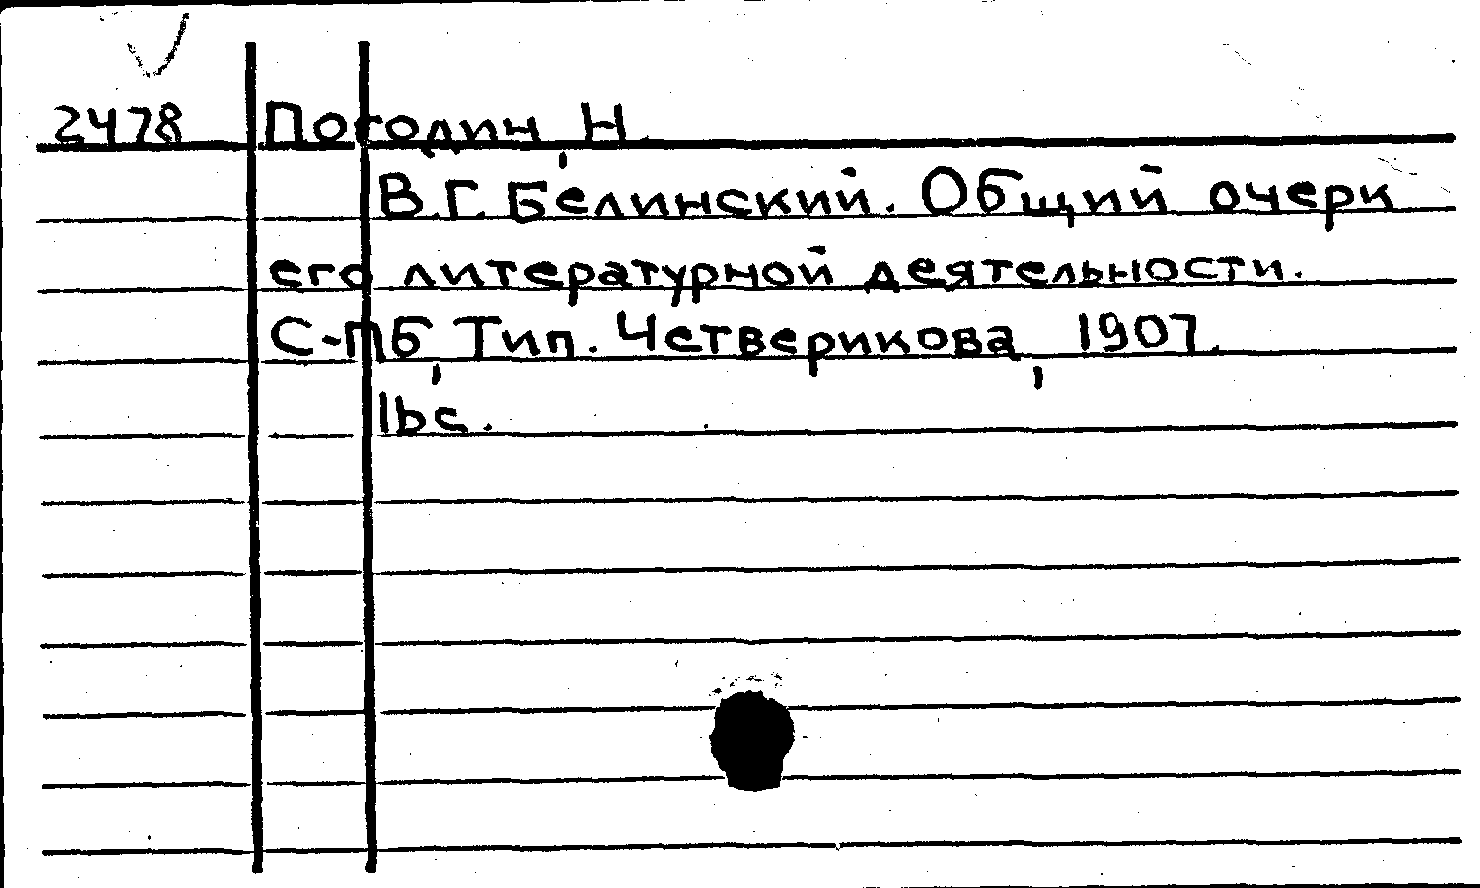 2478 Погодин, Н.
В.Г. Белинский. Общий очерк
его литературной деятельности.
С-ПБ, Тип. Четверикова, 1907.
16с.